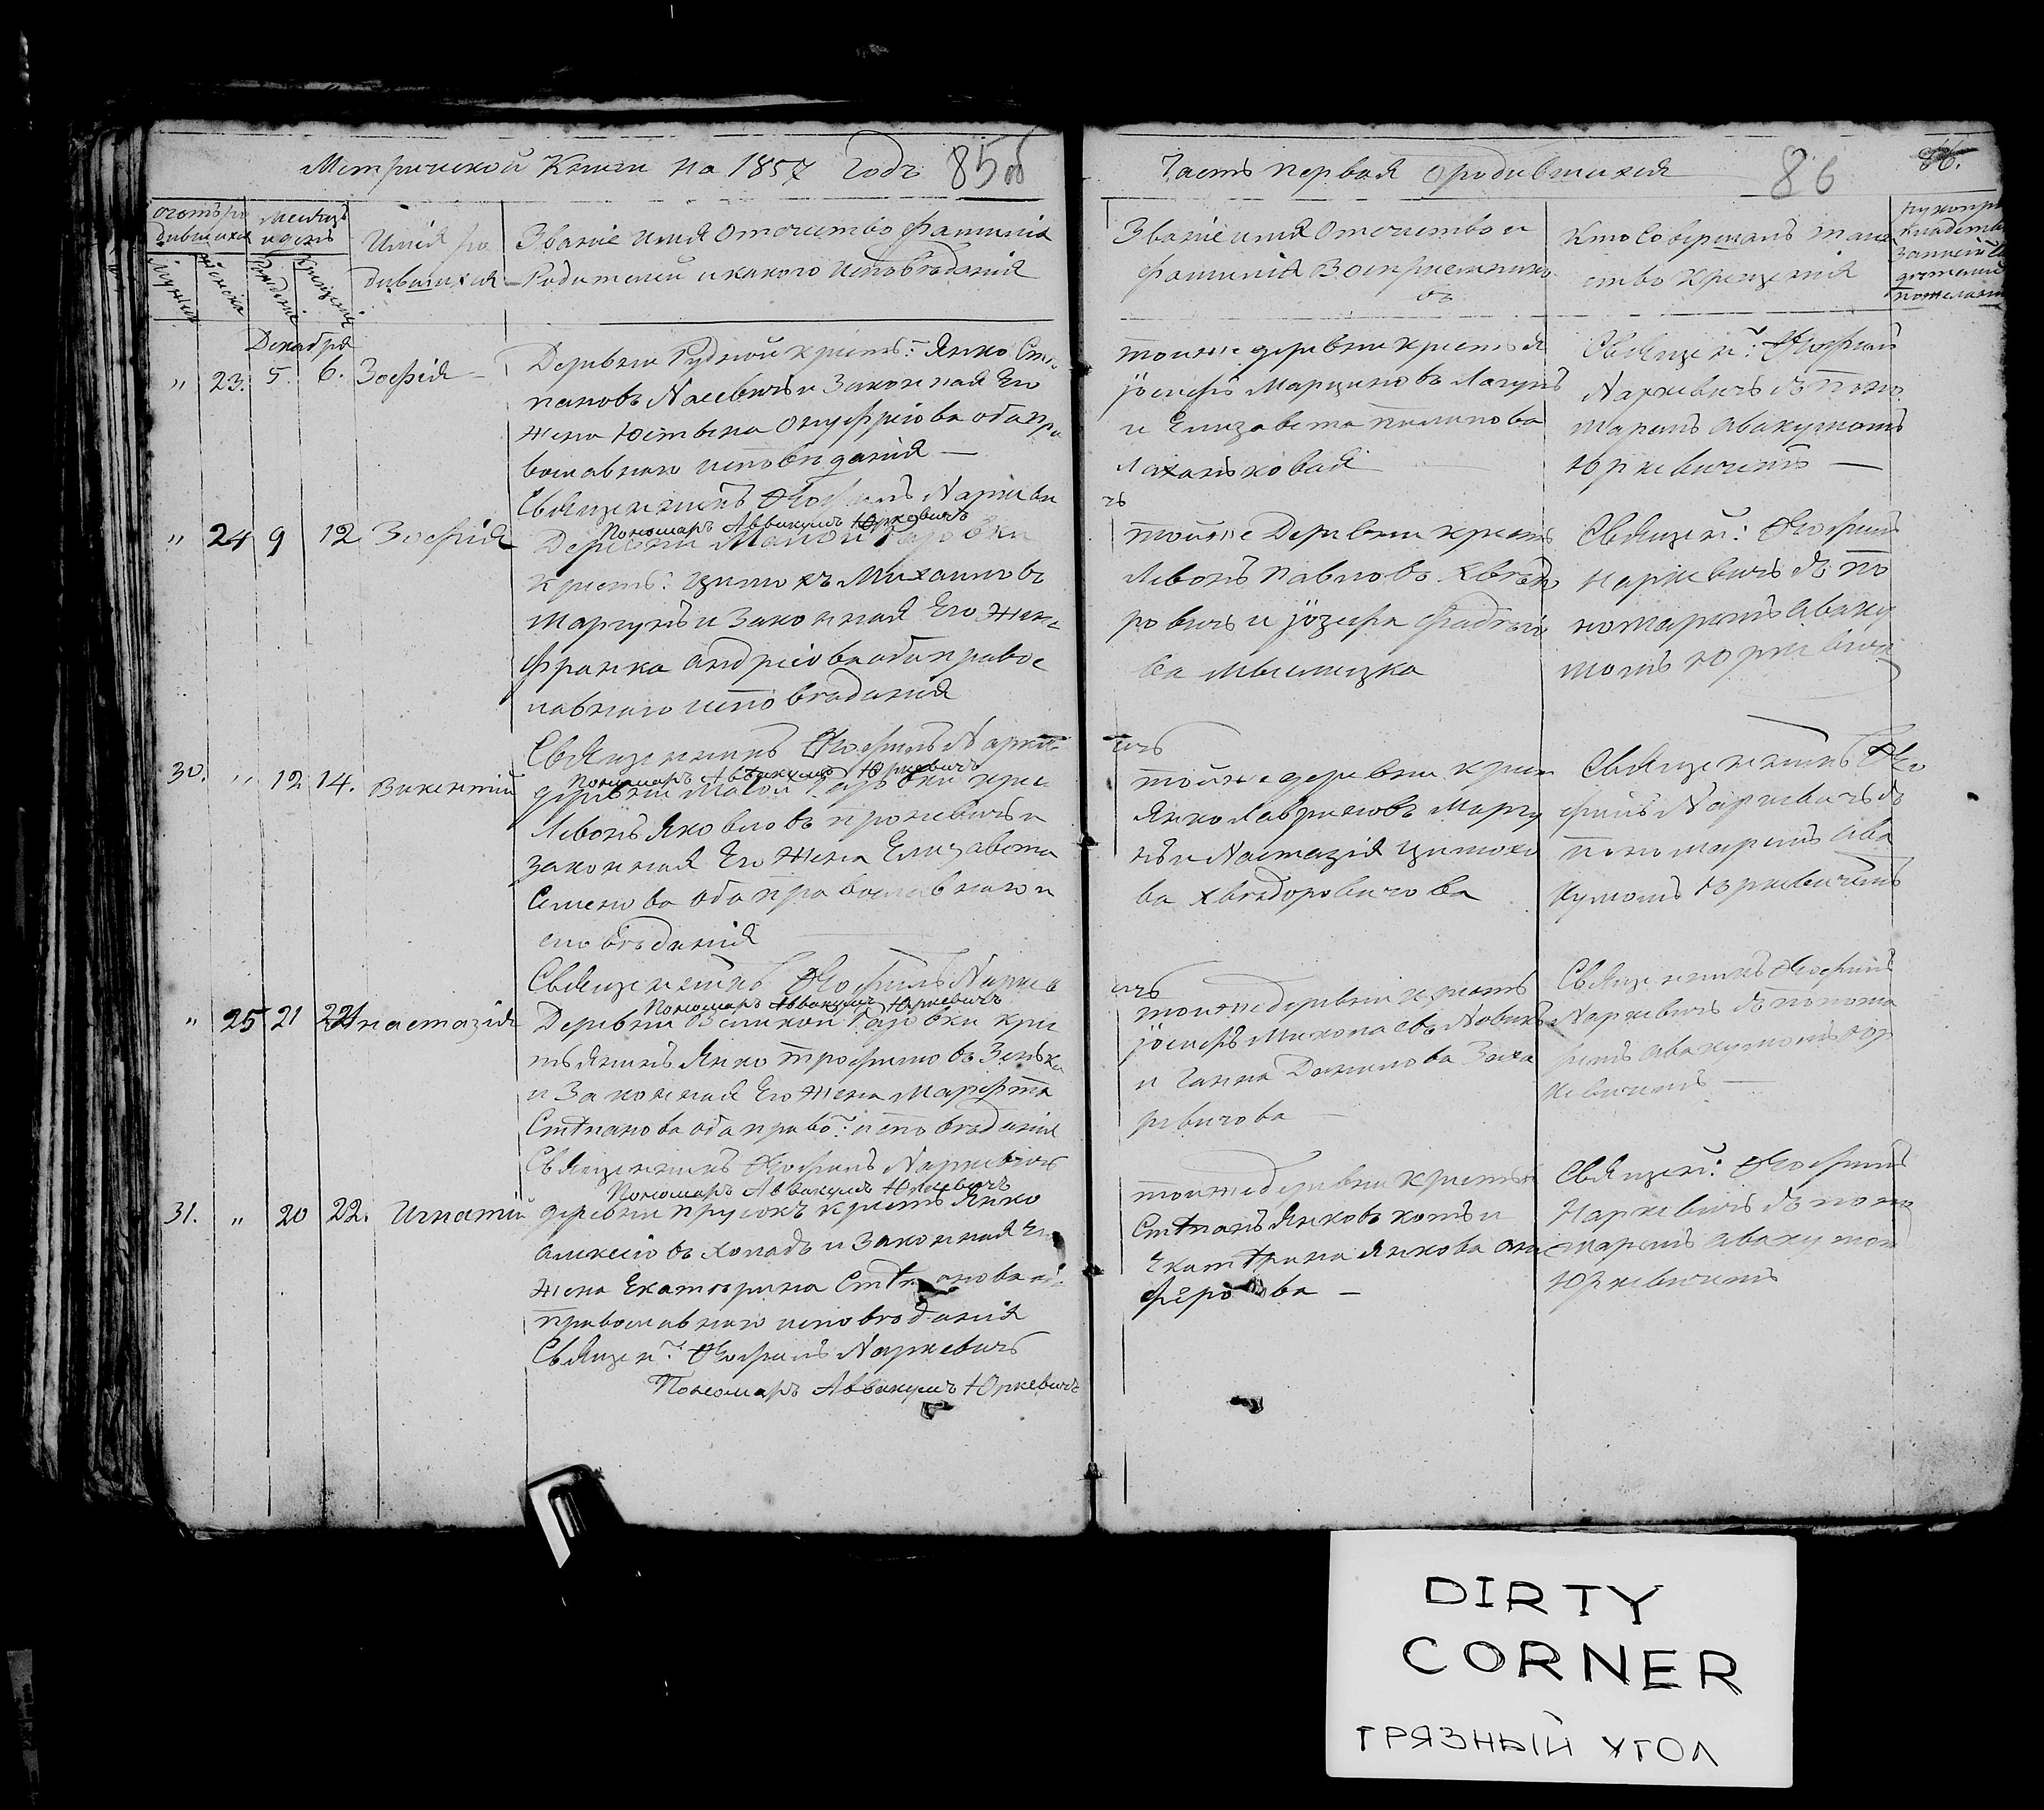 Метрической Книги на 1857 годъ 85об
Часть первая о родившихся 86 86.
счетъ ро
дившихся
Месяцъ
и день
Имя ро
дившихся
Званіе имя Отечество Фамилія
Родителей и какого исповѣданія
Мужска
Женска
Рожденія
Крещенія
Званіе имя Отечество и
фамилія Воспріемнико
въ
Кто Совершалъ таин
ство Крещенія
Декабря
" 23. 5. 6. Зосфія
Деревни Рудной крест: Янко Сте
пановъ Насевичъ и Законная Его
жена Юстына Онуфріова оба пра
вославнаго исповѣданія —
Священникъ Ѳеофилъ Наркеви
Пономаръ Аввакумъ Юркевичъ
тойже деревни крестья
Јосифъ Марциновъ
и Елизавета
Священ: Ѳеофилъ
Наркевичъ съ поно
маремъ Авакумомъ
Юркевичемъ —
" 24 9 12 Зосфія
Деревни Малой
крест: Цимохъ Михаиловъ
Маргунъ и Законная Его Жена
Франка Андреіова оба правос
лавнаго исповѣданія
Священникъ Ѳеофилъ Нарке
Пономаръ Аввакумъ Юркевичъ
чъ
тойже Деревни крест
Левонъ Павловъ Хвѣдо
ровичъ и Јозефа
ва
Священ: Ѳеофилъ
Наркевичъ съ по
номаремъ Аваку
момъ Юркевиче
30. " 12 14. Викентій
деревни Малой крес
Левонъ Яковлевъ и
законная Его Жена Елизавета
Семенова оба православнаго и
сповѣданія
Священникъ Ѳеофилъ Нарке
Пономаръ Аввакумъ Юркевичъ
ичъ
тойже деревни крест
Янко Лавриновъ Маргу
нъ и Настазія Цимохо
ва Хвѣдоровичова
Священникъ Ѳео
филъ Наркевичъ съ
пономаремъ Ава
кумомъ Юркевичемъ
" 25 21 22 Анастазія
Деревни Великой кре
стьянинъ Янко Трофимовъ
и Законная Его Жена Марѳта
Степанова оба прав: исповѣданія
Священникъ Ѳеофилъ Наркевичъ
Пономаръ Аввакумъ Юркевичъ
ичъ
тойже деревни крест
Јосифъ Миколаевъ Новикъ
и Ганна Данилова Заха
ревичова —
Священникъ Ѳеофилъ
Наркевичъ съ понома
ремъ Авакумомъ Юр
кевичемъ —
31. " 20 22. Игнатій
деревни Прусокъ крест Янко
Алексіовъ и Законная Его
жена Екатерина Степанова
православнаго исповѣданія
Священ: Ѳеофилъ Наркевичъ
Пономаръ Аввакумъ Юркевичъ
тойже деревни крестья
Степанъ Янковъ и
Екатерина Янкова
Священ: Ѳеофилъ
Наркевичъ съ поно
маремъ Авакумом
Юркевичемъ
DIRTY
CORNER
ГРЯЗНЫЙ УГОЛ